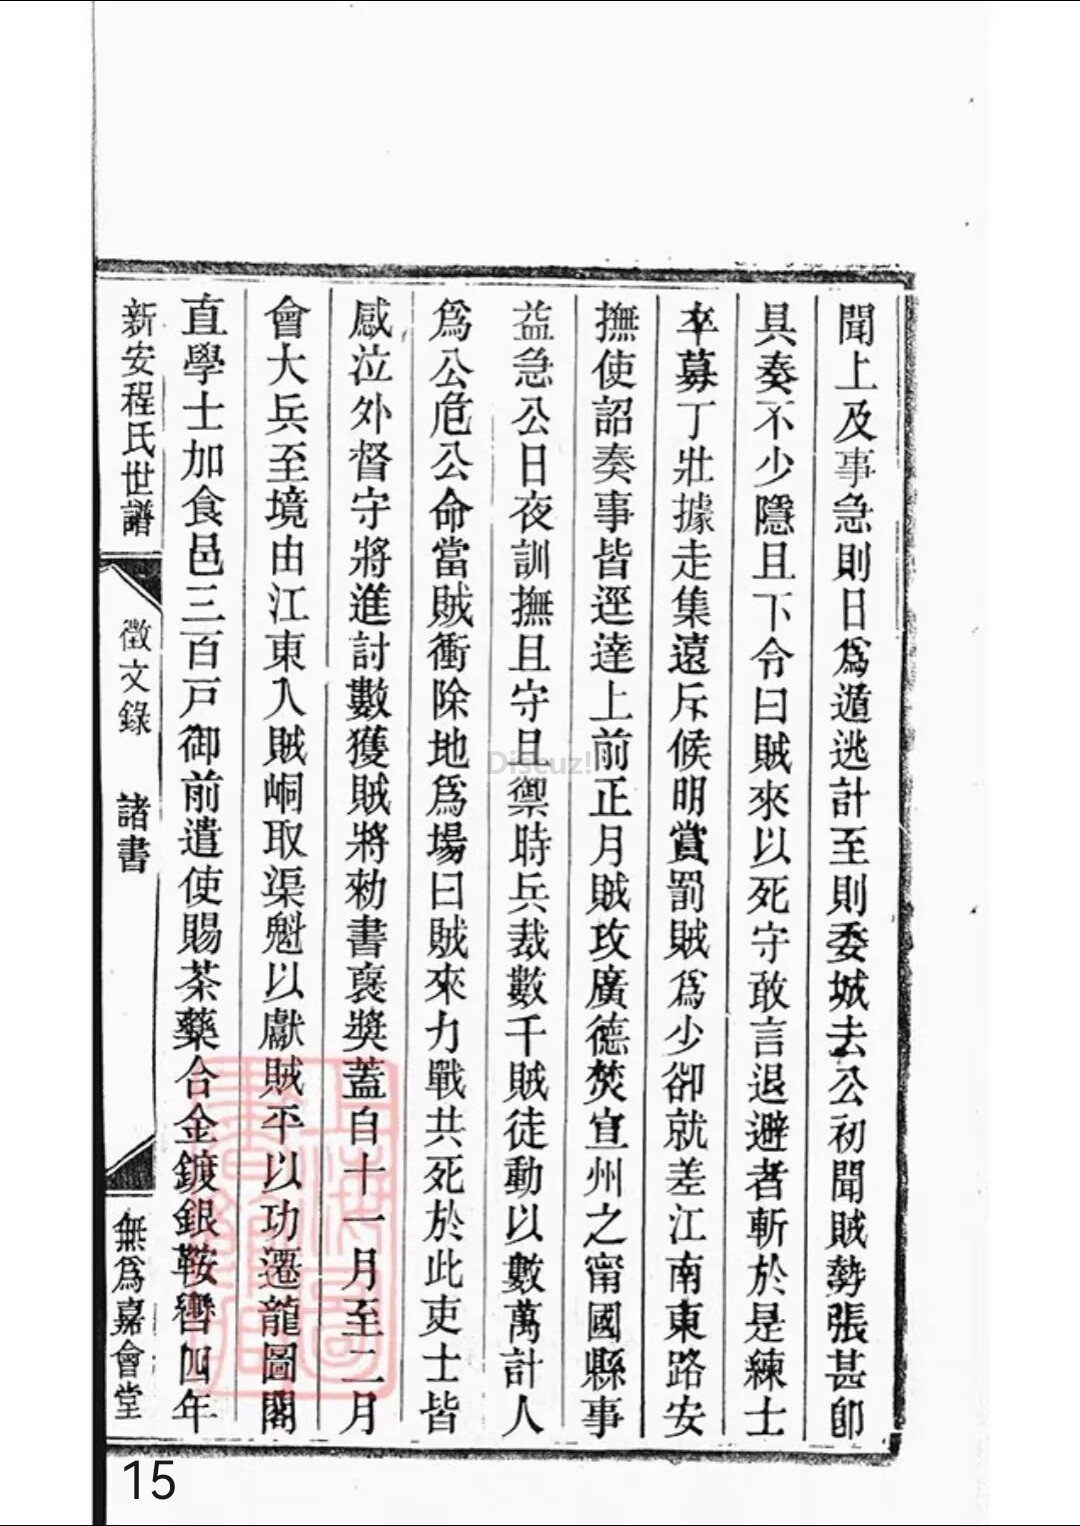 聞上及事急則日爲遁逃計至則委城去公初聞賊勢張甚卽
具奏不少隱且下令曰賊來以死守敢言退避者斬於是練士
卒募丁壯據走集遠斥候明賞罰賊爲少卻就差江南東路安
撫使詔奏事皆逕達上前正月賊攻廣德焚宣州之甯國縣事
益急公日夜訓撫且守且禦時兵裁數千賊徒動以數萬計人
爲公危公命當賊衝除地爲場曰賊來力戰共死於此吏士皆
感泣外督守將進討數獲賊將勑書褒奬蓋自十一月至二月
會大兵至境由江東入賊峒取渠魁以獻賊平以功遷龍圖閣
直學士加食邑三百戸御前遣使賜茶藥合金鍍銀鞍轡四年
新安程氏世譜
徵文錄
諸書
無爲嘉會堂
上海圖書館
Discuz!
15